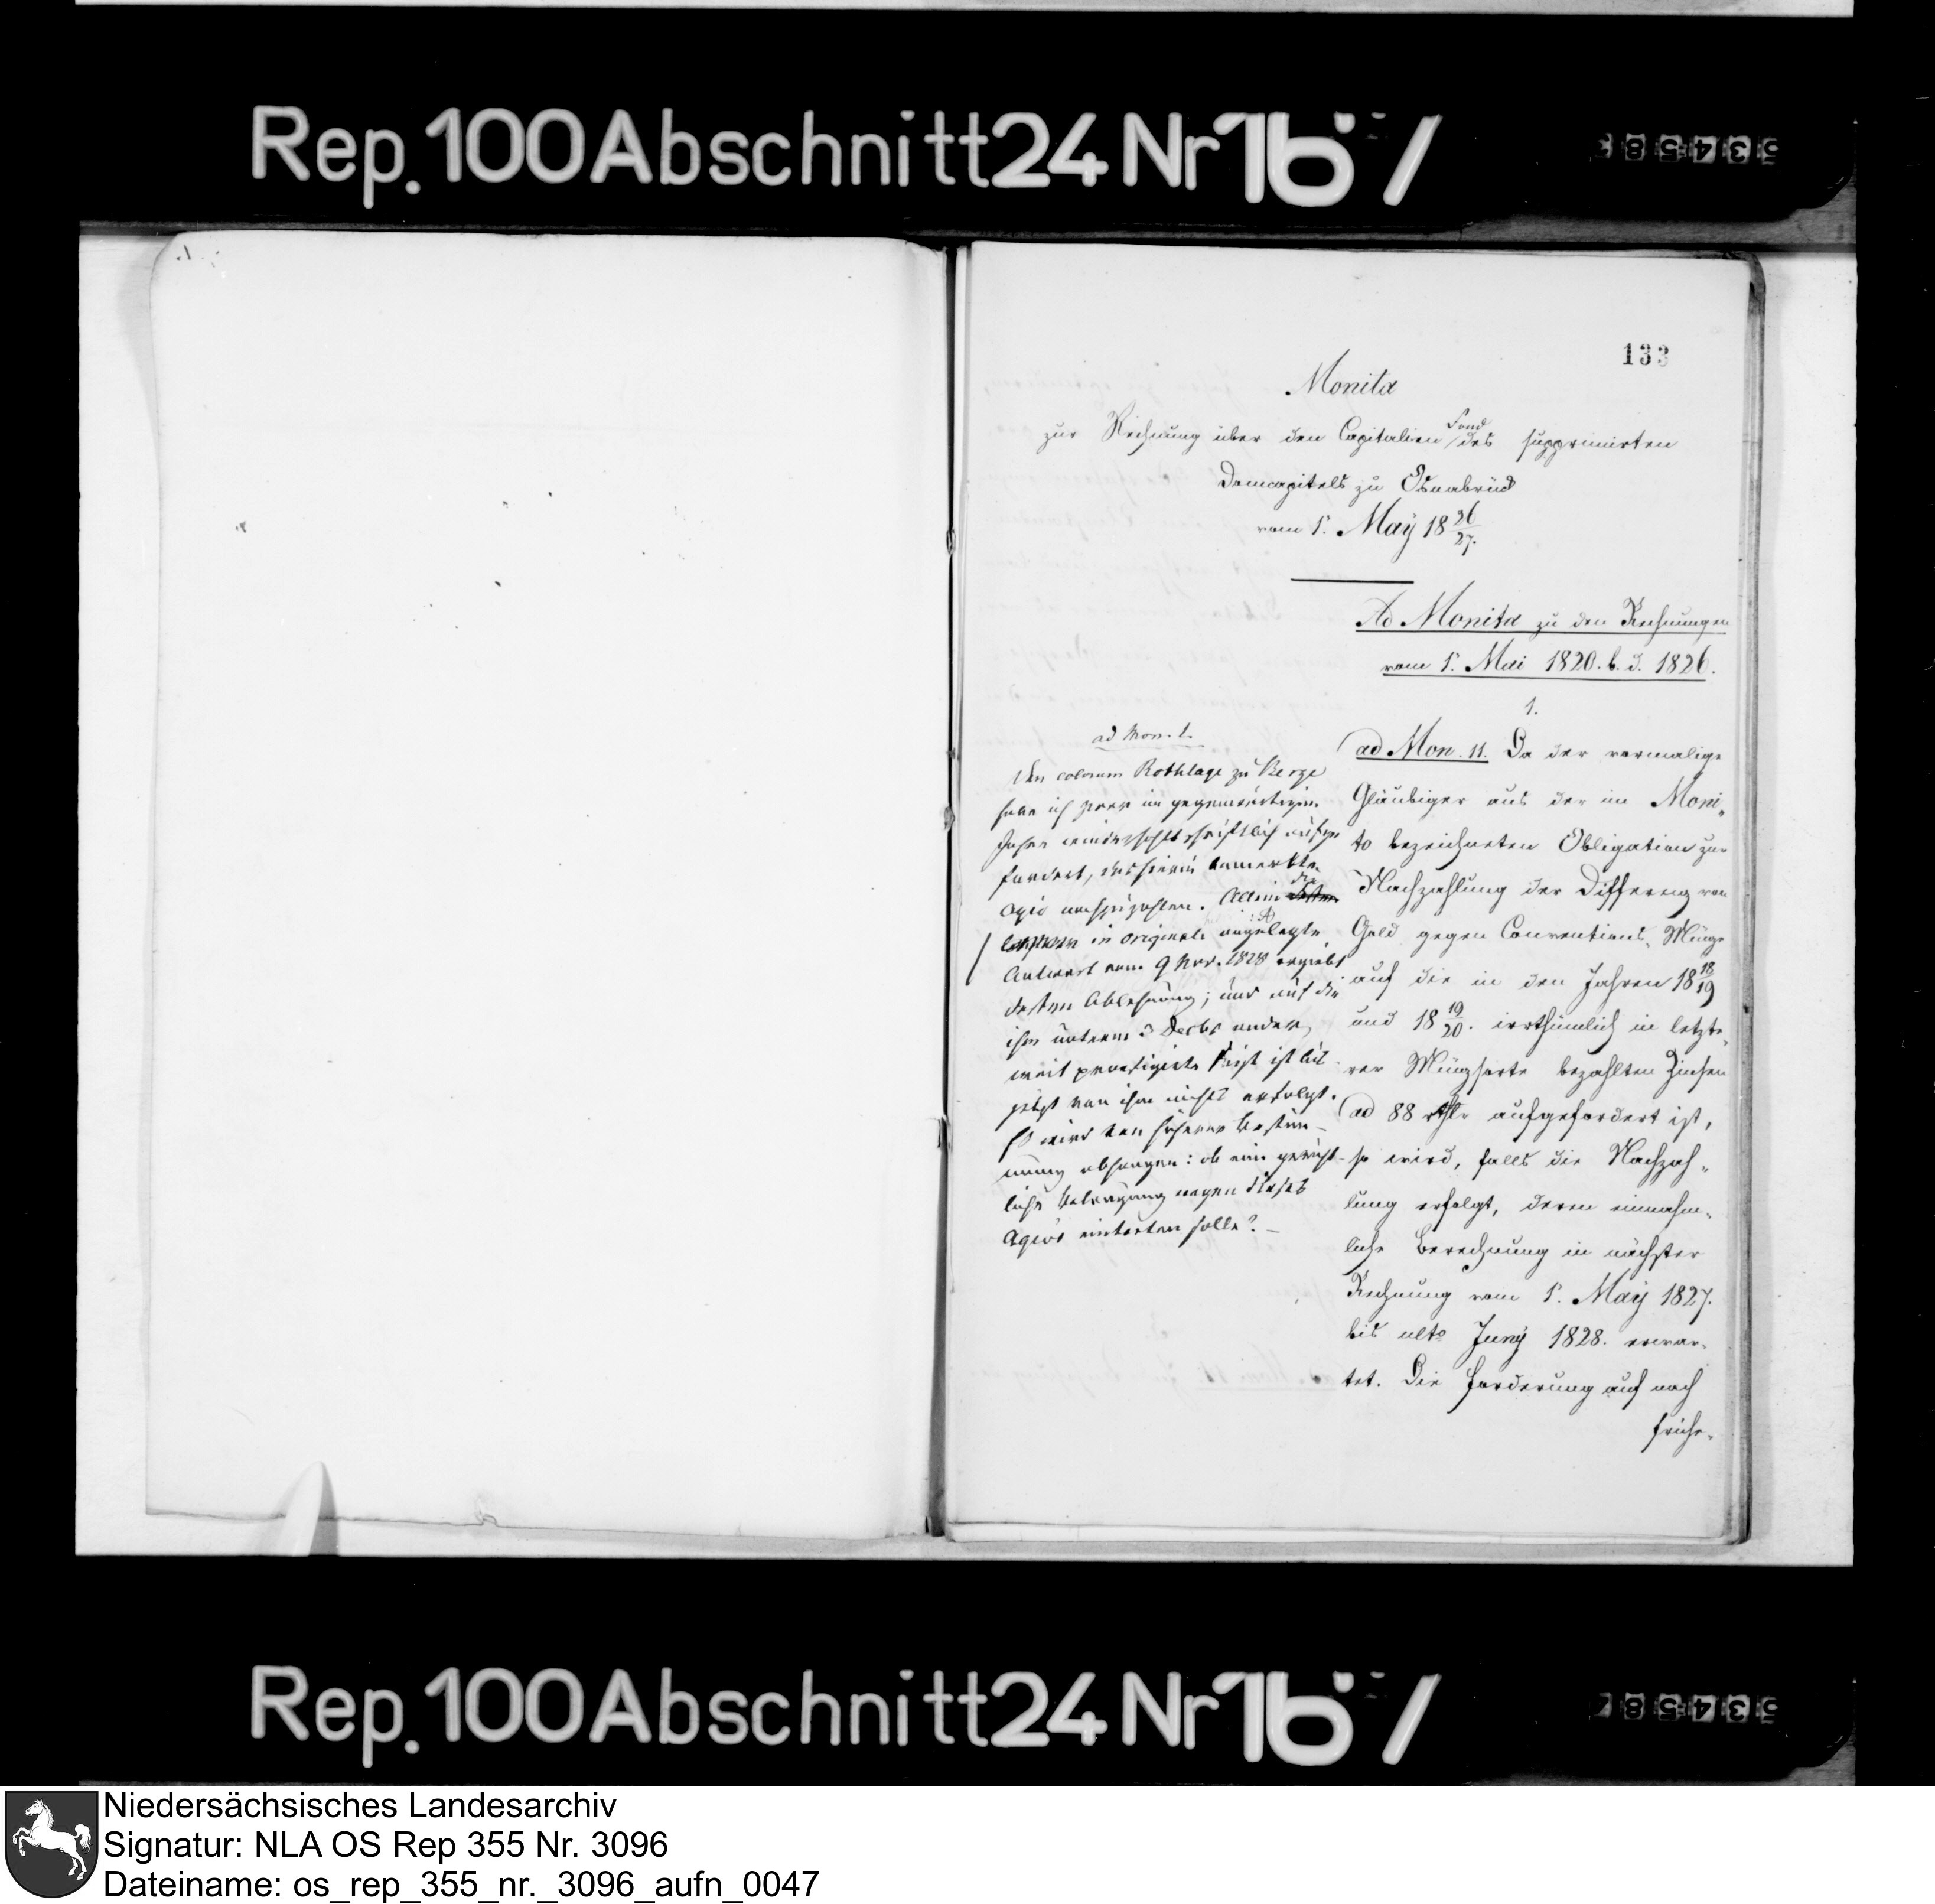 Rep. 100 Abschnitt 24 Nr 167
53458
133
Monita
zur Rechnung über den Capitalien Fond des supprimirten
Domcapitels zu Osnabrück
vom 1. May 18 26/27.
Ad Monita zu den Rechnungen
vom 1. Mai 1820. b. d. 1826.
1.
ad Mon. 11. Da der vormalige
Gläubiger aus der im Moni-
to bezeichneten Obligation zur
Nachzahlung der Differenz von
Gold gegen Conventions-Münze
auf die in den Jahren 18 18/19
und 18 19/20. irrthümlich in letzte-
rer Münzsorte bezahlten Zinsen
ad 88 rthlr aufgefordert ist,
so wird, falls die Nachzah-
lung erfolgt, deren einnahm-
liche Berechnung in nächster
Rechnung vom 1. May 1827.
bis ulto Juny 1828. erwar-
tet. Die Forderung auf noch
frühe-
ad Mon. 1.
Den colonum Rothlage zu Berge
habe ich zwar im gegenwärtigen
Jahre wiederholt schriftlich aufge
fordert, das hierin bemerkte
Agio nachzuzahlen. Allein die
in originali angelegte
Antwort vom 9 Nov. 1828 ergiebt
dessen Ablehnung; und auf die
ihm unterm 3 Decbr ander
weit praefigirte Frist ist bis
jetzt von ihm nichts erfolgt.
Es wird von höherer Bestim-
mung abhangen: ob eine gericht-
liche Belangung wegen dieses
Agio's eintreten solle? -
Rep. 100 Abschnitt 24 Nr 167
53458
Niedersächsisches Landesarchiv
Signatur: NLA OS Rep 355 Nr. 3096
Dateiname: os_rep_355_nr._3096_aufn_0047